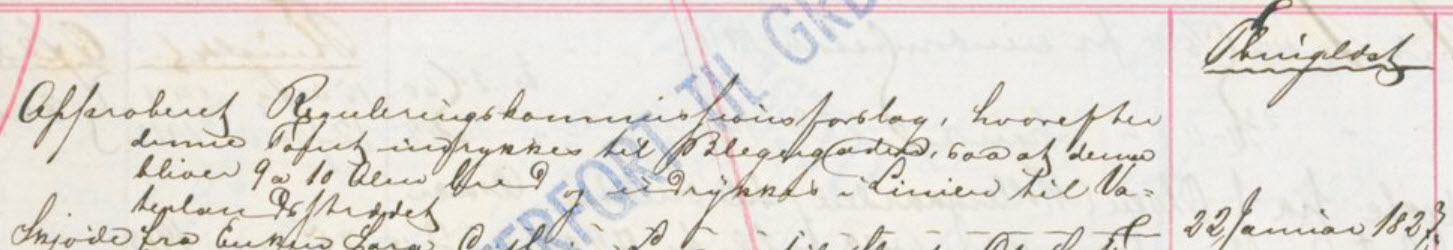 Tinglæst
Approberet Reguleringskommissionsforslag, hvorefter
denne Tomt indrykkes til Blegergaden, saa at denne
bliver 9 a 10 Alen bred og udrykkes i Linien til Va-
terlandsstrædet
Skjøde fra Enken
22 Januar 1827.
OVERFØRT TIL GRB